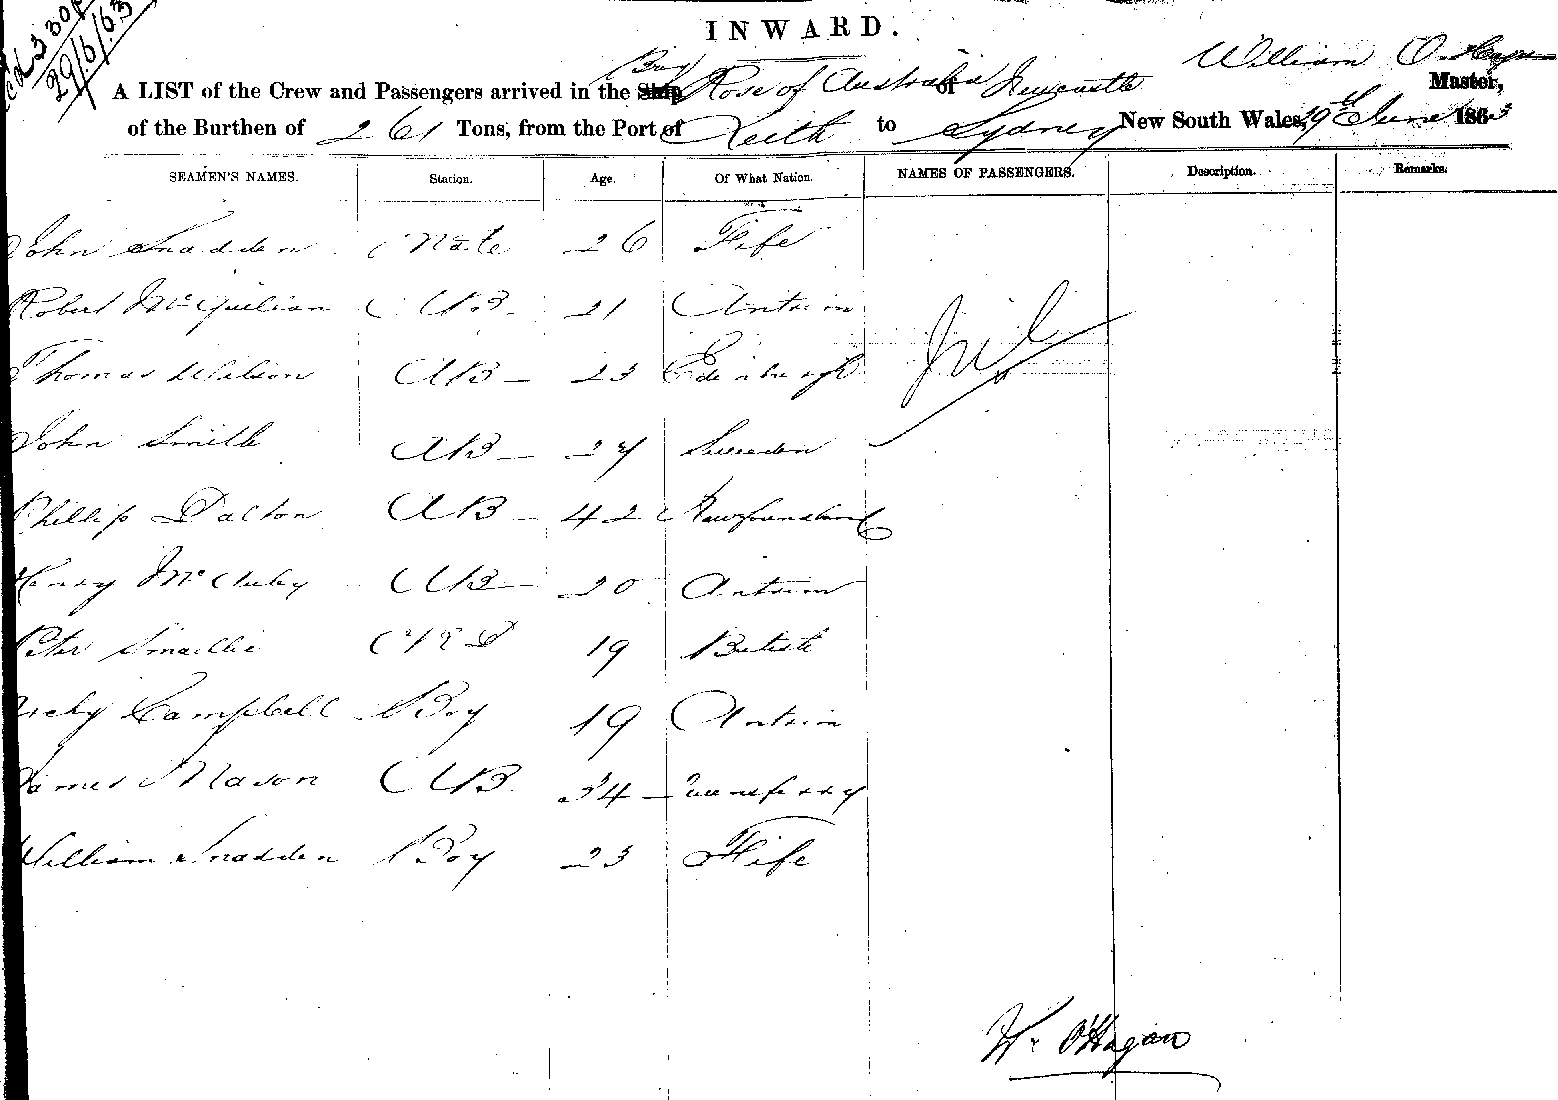 29/6/63
INWARD.
A LIST of the Crew and Passengers arrived in the Ship Rose of Australia of Newcastle William O. Master,
of the Burthen of 261 Tons, from the Port of Leith to Sydney New South Wales, 19 June 1863
SEAMEN'S NAMES. Station. Age. Of What Nation. NAMES OF PASSENGERS. Description. Remarks.
John Snadden Mate 26 Fife
Robert AB 21 Antrim
Thomas Wilson AB 23 Edinburgh
John Smith AB 27 Sweden
Phillip Dalton AB 42 Newfoundland
Henry AB 20 Antrim
Peter Smaillie 19
Campbell Boy 19 Antrim
James Mason AB 34 Queensferry
William Snadden Boy 23 Fife
Nil
Wm O'Hagan